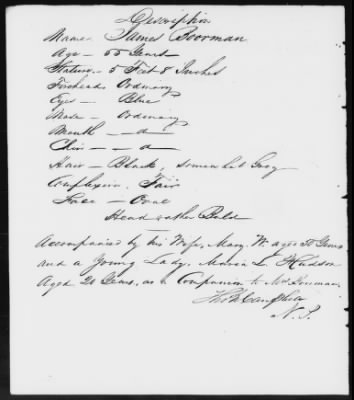 Description
Name - James Boorman
Age - 55 Years
Stature - 5 Feet 8 Inches
Forehead Ordinary
Eyes - Blue
Nose - Ordinary
Mouth - - do
Chin - - do
Hair - Black, somewhat Grey
Complexion. Fair
Face - Oval
Head rather Bald
Accompanied by his Wife, Mary W. aged 50 Years
and a Young Lady. Maria L. Hudson
Aged 20 Years, as a Companion to Mrs Boorman.
N.P.